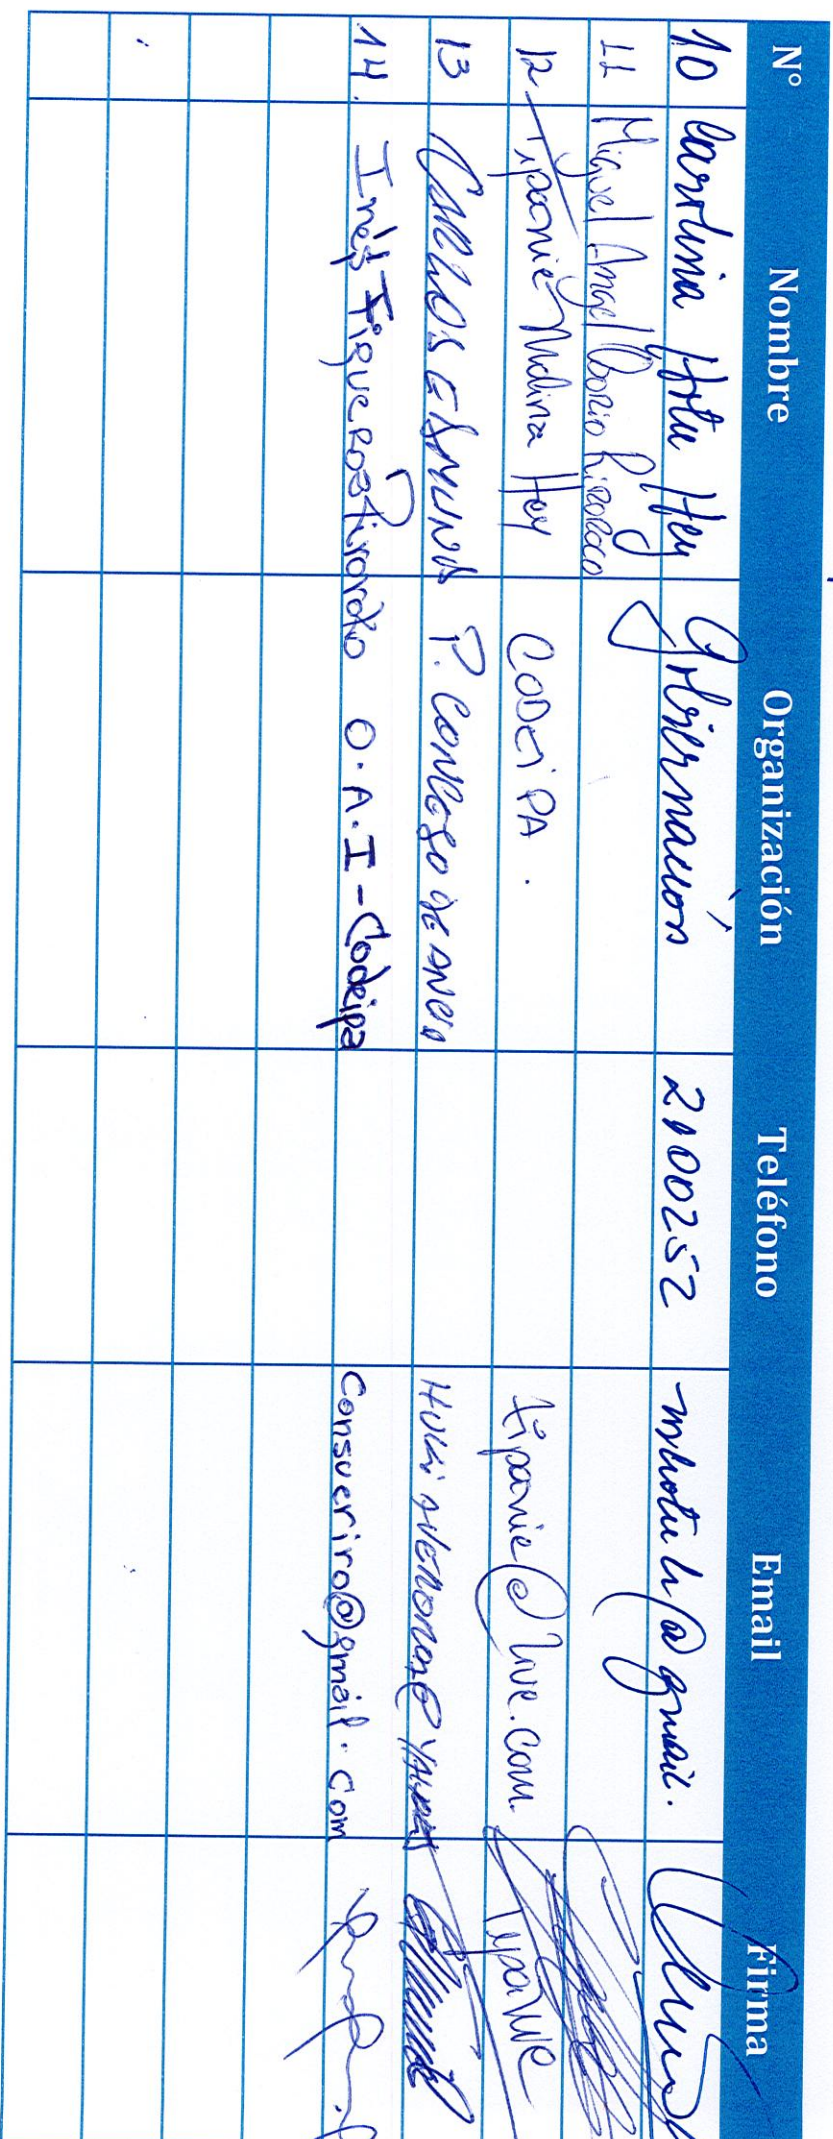 Nº Nombre Organización Teléfono Email Firma
10 Carolina Hotu Hey Gobernación 2100252 mhotuh@gmail.
11 Miguel Angel Osorio
12 Tiparnie Molina Hey CODEIPA. tiparnie@live.com. Tiparnie
13 CARLOS EDMUNDS P. CONSEJO DE ANCIA
14. Inés Figueroa O.A.I-Codeipa Consueriro@gmail.com